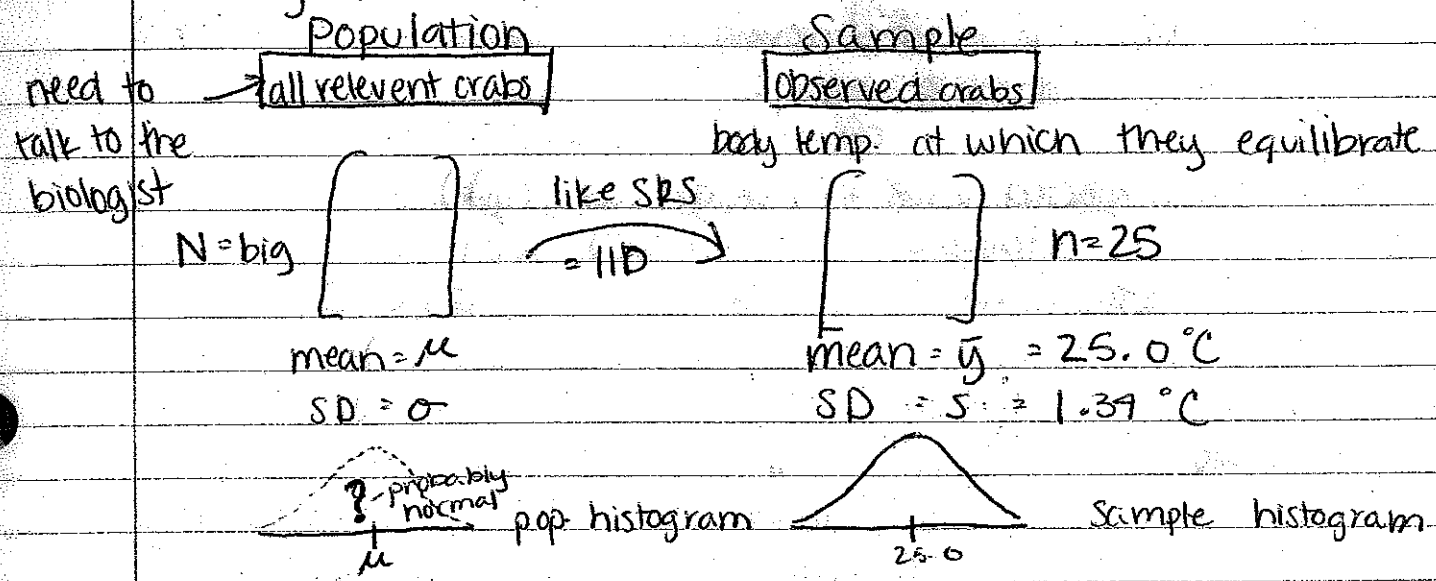 Population
Sample
need to
talk to the
biologist
all relevent crabs
observed crabs
body temp. at which they equilibrate
N = big
like SRS
= IID
n = 25
mean = μ
SD = σ
mean = ȳ = 25.0 °C
SD = s = 1.34 °C
? - probably
normal
μ
pop. histogram
25.0
sample histogram